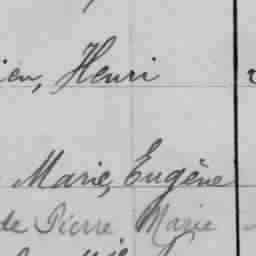 ien, Henri
Marie, Eugène
de Pierre Marie